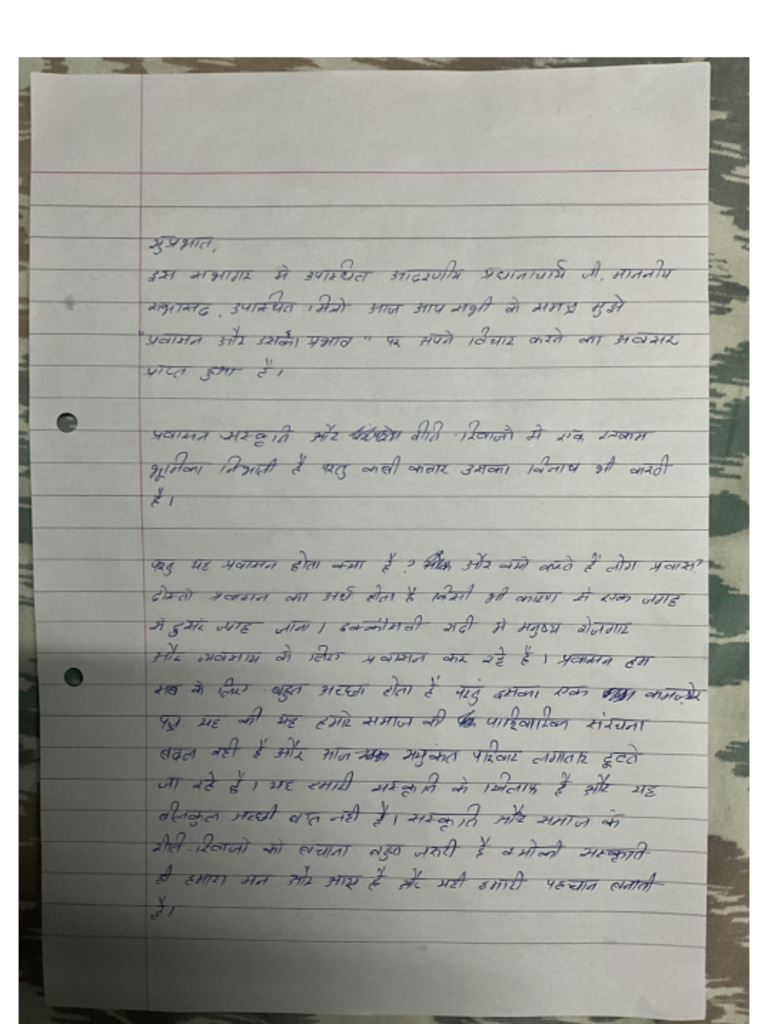 सुप्रभात,
इस सभागार मे उपास्थित आदरणीय प्रधानाचार्य जी, माननीय
सभासद, उपास्थित मित्रो आज आप सभी के समक्ष मुझे
"प्रवासन और उसका प्रभाव" पर अपने विचार करने का अवसर
प्राप्त हुआ है।
प्रवासन संस्कृति और रीति रिवाजो मे एक रक्षक
भूमिका निभाती है परंतु कभी कबार उसका विनाष भी करती
है।
परंतु यह प्रवासन होता क्या है? और क्यो करते हैं लोग प्रवास?
दोस्तो प्रवासन का अर्थ होता है किसी भी कारण से एक जगह
से दुसरे जगह जाना। इक्कीसवी सदी मे मनुष्य रोजगार
और व्यवसाय के लिए प्रवासन कर रहे है। प्रवासन हम
सब के लिए बहुत अच्छा होता है परंतु इसका एक कमज़ोर
पक्ष यह की यह हमारे समाज की पारिवारिक संरचना
बदल रही है और आज सयुंक्त परिवार लगातार टूटते
जा रहे है। यह हमारी संस्कृति के खिलाफ है और यह
बीलकुल अच्छी बात नही है। संस्कृति और समाज के
रीति रिवाजो को बचाना बहुत जरुरी है क्योकी संस्कृति
ही हमारा मन और आत्म है और यही हमारी पहचान बनाती
है।